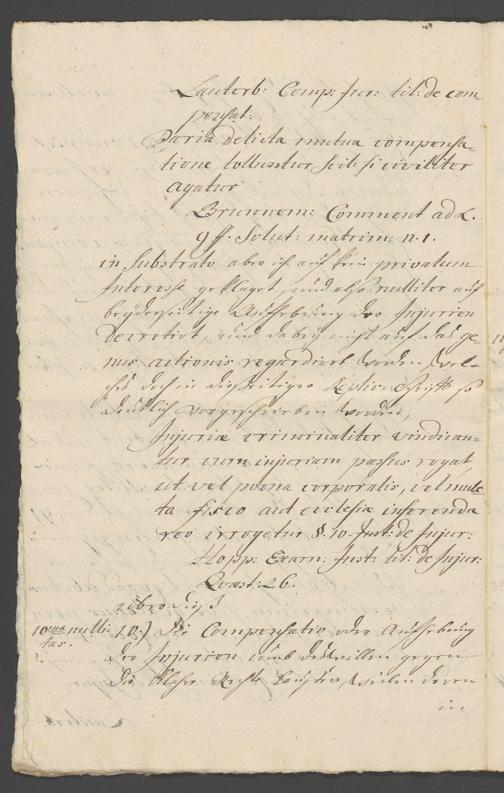 Lauterb: Comp: jur: tit: de com
pensat:
Paria delicta mutua compensa-
tione tolluntur scil: si civiliter
agatur
Brunnem: Comment ad L.
9 ff. Solut: matrim: n. 1.
in Substrato aber ist auf kein privatum
Interesse geklaget, und also nulliter auf
beyderseitige Aufhebung der Injurien
Decretirt, und dabey nicht auf das ge-
nus actionis regardirt worden, wel-
ches doch in diesseitiger Replic-Schrifft so
deutlich vorgeschrieben worden,
Injuriæ criminaliter vindican-
tur cum injuriam passus rogat,
ut vel poena corporalis, vel mulc
ta fisco aut ecclesiæ inferenda
reo irrogetur §. 10 Inst: de Injur:
Hopp: Exam: Inst: tit: de Injur:
Quæst: 26.
10ma nulli-
tas.
10.) Die Compensatio oder Aufhebung
der Injurien umb deswillen gegen
die Rechte
in-